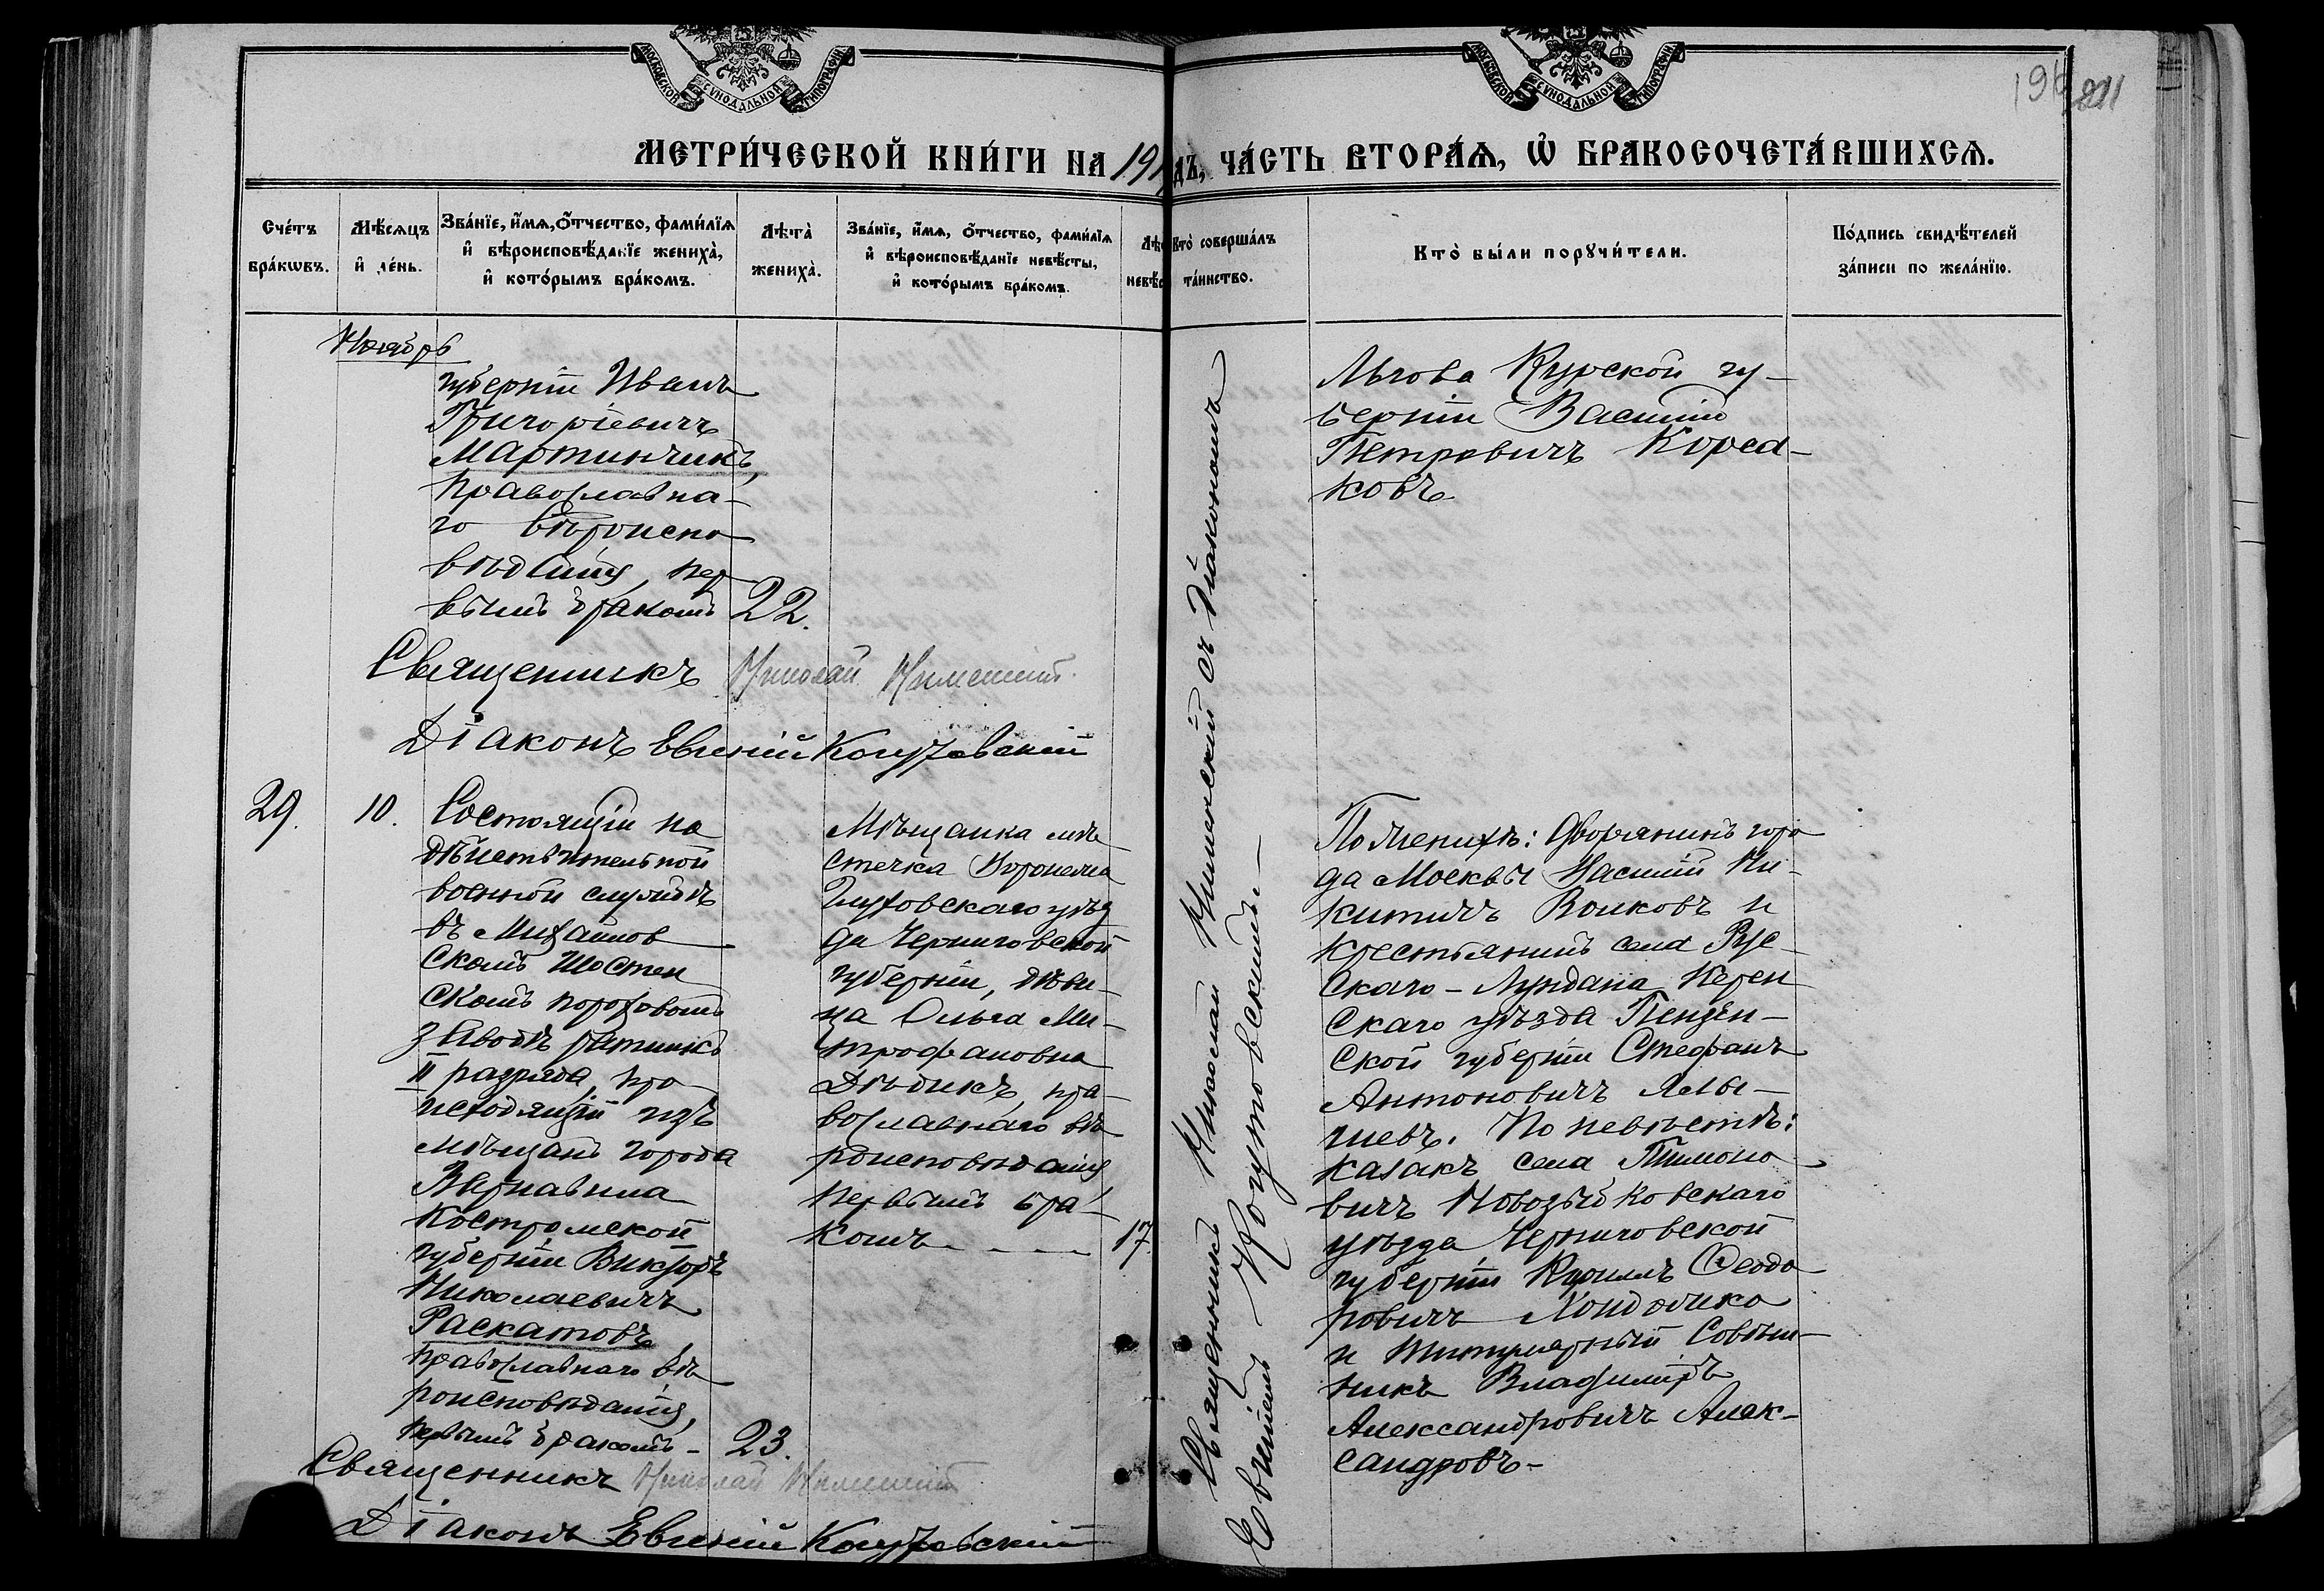 МОСКОВСКОЙ СѴНОДАЛЬНОЙ ТИПОГРАФІИ
МОСКОВСКОЙ СѴНОДАЛЬНОЙ ТИПОГРАФІИ
211
МЕТРИ́ЧЕСКОЙ КНИ́ГИ НА 191 ДЪ, ЧА́СТЬ ВТОРА́Ѧ, Ѽ БРАКОСОЧЕТА́ВШИХСѦ.
Сче́тъ бра́кѡвъ.
Мѣ́сяцъ и҆ де́нь.
Зва́нїе, и҆́мѧ, ѻ҆́тчество, фами́лїѧ
и҆ вѣроисповѣ́данїе жениха̀,
и҆ кото́рымъ бра́комъ.
Лѣта̀ жениха̀.
Зва́нїе, и҆́мѧ, ѻ҆́тчество, фами́лїѧ
и҆ вѣроисповѣ́данїе невѣ́сты,
и҆ кото́рымъ бра́комъ.
Лѣ
невѣс
Кто̀ соверша́лъ
та́инство.
Кто̀ бы́ли порꙋчи́тели.
По́дпись свидѣ́телей
за́писи по жела́нїю.
Ноябрь
губерніи Иванъ
Григоріевичъ
Мартинчикъ,
православна-
го вѣроиспо
вѣданія, пер
вымъ бракомъ 22.
Священникъ Николай
Діаконъ Евгеній
Льгова Курской гу-
берніи Василій
Петровичъ Корса-
ковъ
29. 10.
Состоящій на
дѣйствительной
военной службѣ
въ Михайлов
скомъ Шостен
скомъ пороховомъ
заводѣ ратникъ
II разряда, про
исходящій изъ
мѣщанъ города
Варнавина
Костромской
губерніи Викторъ
Николаевичъ
Раскатовъ
православнаго вѣ
роисповѣданія,
первымъ бракомъ - 23.
Мѣщанка мѣ
стечка Воронежа
Глуховскаго уѣз
да Черниговской
губерніи, дѣви-
ца Ольга Ми-
трофановна
Дѣдикъ, пра-
вославнаго вѣ
роисповѣданія
первымъ бра-
комъ - - - - 17.
Священникъ Николай
съ діакономъ
Евгеніемъ
По женихѣ: Дворянинъ горо
да Москвы Василій Ни-
китичъ Волковъ и
крестьянинъ села Рус-
скаго-Лундана Керен
скаго уѣзда Пензен-
ской губерніи Стефанъ
Антоновичъ Ямы-
шевъ. По невѣстѣ:
казакъ села Тимоно
вичъ Новозыбковскаго
уѣзда Черниговской
губерніи Кириллъ Ѳеодо
ровичъ
и титулярный Совѣт-
никъ Владиміръ
Александровичъ Алек-
сандровъ-
Священникъ Николай
Діаконъ Евгеній